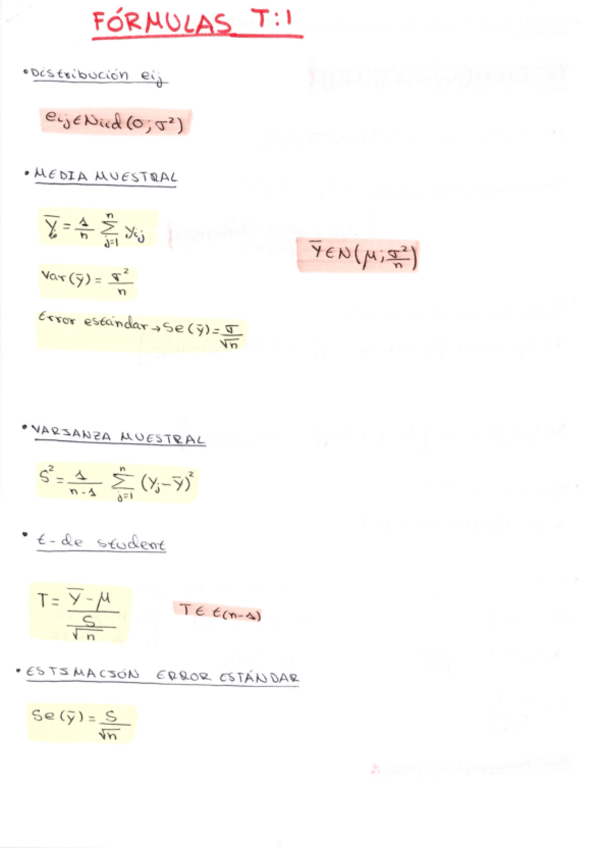 FÓRMULAS T:1
• Distribución eij
eij ∈ Niid (0; σ²)
• MEDIA MUESTRAL
ȳi. = 1/n ∑ⁿⱼ₌₁ yij
ȳ ∈ N(μ; σ²/n)
Var(ȳ) = σ²/n
Error estándar → se(ȳ) = σ/√n
• VARIANZA MUESTRAL
S² = 1/(n-1) ∑ⁿⱼ₌₁ (yj-ȳ)²
• t- de student
T = (ȳ - μ)/(S/√n)
T ∈ t(n-1)
• ESTIMACIÓN ERROR ESTÁNDAR
Se(ȳ) = S/√n